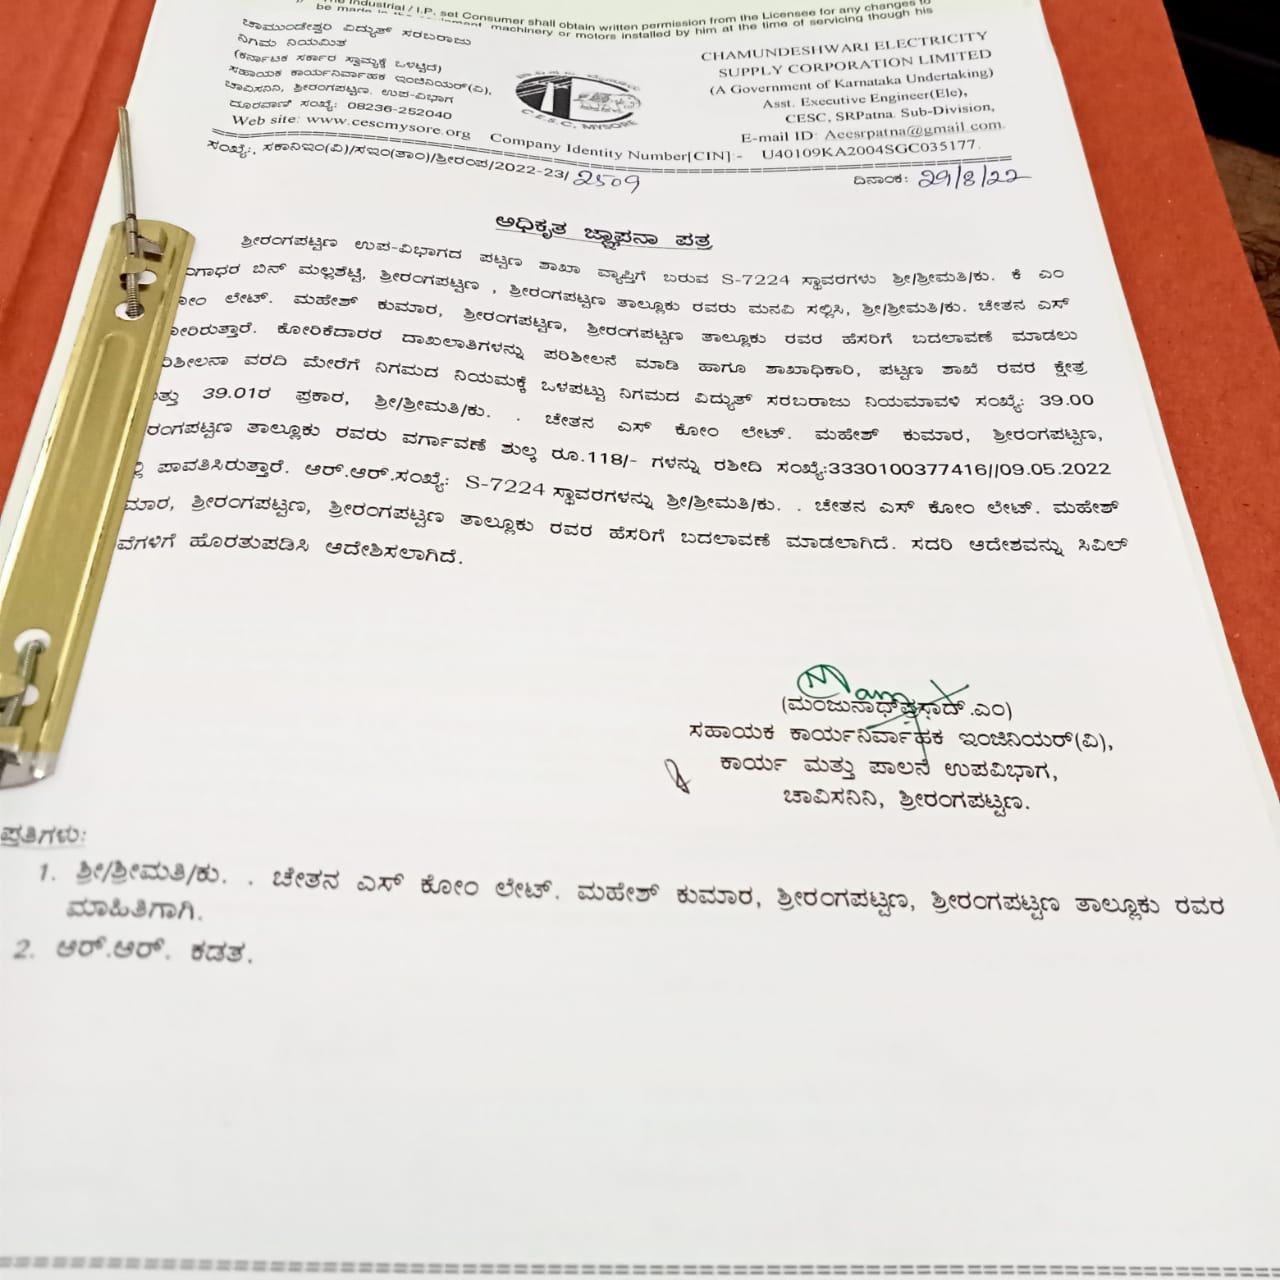 The Industrial / I.P. set Consumer shall obtain written permission from the Licensee for any changes to
be made in the equipment, machinery or motors installed by him at the time of servicing though his
ಚಾಮುಂಡೇಶ್ವರಿ ವಿದ್ಯುತ್ ಸರಬರಾಜು
ನಿಗಮ ನಿಯಮಿತ
(ಕರ್ನಾಟಕ ಸರ್ಕಾರ ಸ್ವಾಮ್ಯಕ್ಕೆ ಒಳಟ್ಟಿದೆ)
ಸಹಾಯಕ ಕಾರ್ಯನಿರ್ವಾಹಕ ಇಂಜಿನಿಯರ್(ವಿ),
ಚಾವಿಸನಿನಿ, ಶ್ರೀರಂಗಪಟ್ಟಣ. ಉಪ-ವಿಭಾಗ
ದೂರವಾಣಿ ಸಂಖ್ಯೆ: 08236-252040
Web site: www.cescmysore.org
C.E.S.C, MYSORE
CHAMUNDESHWARI ELECTRICITY
SUPPLY CORPORATION LIMITED
(A Government of Karnataka Undertaking)
Asst. Executive Engineer(Ele),
CESC, SRPatna. Sub-Division,
E-mail ID: Aeesrpatna@gmail.com.
Company Identity Number[CIN] - U40109KA2004SGC035177.
ಸಂಖ್ಯೆ:, ಸಕಾನಿಇಂ(ವಿ)/ಸಇಂ(ತಾಂ)/ಶ್ರೀರಂಪ/2022-23/ 2509
ದಿನಾಂಕ: 29/8/22
ಅಧಿಕೃತ ಜ್ಞಾಪನಾ ಪತ್ರ
ಶ್ರೀರಂಗಪಟ್ಟಣ ಉಪ-ವಿಭಾಗದ ಪಟ್ಟಣ ಶಾಖಾ ವ್ಯಾಪ್ತಿಗೆ ಬರುವ S-7224 ಸ್ಥಾವರಗಳು ಶ್ರೀ/ಶ್ರೀಮತಿ/ಕು. ಕೆ ಎಂ
ಗಾಧರ ಬಿನ್ ಮಲ್ಲಶೆಟ್ಟಿ, ಶ್ರೀರಂಗಪಟ್ಟಣ , ಶ್ರೀರಂಗಪಟ್ಟಣ ತಾಲ್ಲೂಕು ರವರು ಮನವಿ ಸಲ್ಲಿಸಿ, ಶ್ರೀ/ಶ್ರೀಮತಿ/ಕು. ಚೇತನ ಎಸ್
ಕೋಂ ಲೇಟ್. ಮಹೇಶ್ ಕುಮಾರ, ಶ್ರೀರಂಗಪಟ್ಟಣ, ಶ್ರೀರಂಗಪಟ್ಟಣ ತಾಲ್ಲೂಕು ರವರ ಹೆಸರಿಗೆ ಬದಲಾವಣೆ ಮಾಡಲು
ಕೋರಿರುತ್ತಾರೆ. ಕೋರಿಕೆದಾರರ ದಾಖಲಾತಿಗಳನ್ನು ಪರಿಶೀಲನೆ ಮಾಡಿ ಹಾಗೂ ಶಾಖಾಧಿಕಾರಿ, ಪಟ್ಟಣ ಶಾಖೆ ರವರ ಕ್ಷೇತ್ರ
ಶೀಲನಾ ವರದಿ ಮೇರೆಗೆ ನಿಗಮದ ನಿಯಮಕ್ಕೆ ಒಳಪಟ್ಟು ನಿಗಮದ ವಿದ್ಯುತ್ ಸರಬರಾಜು ನಿಯಮಾವಳಿ ಸಂಖ್ಯೆ: 39.00
ತ್ತು 39.01ರ ಪ್ರಕಾರ, ಶ್ರೀ/ಶ್ರೀಮತಿ/ಕು. . ಚೇತನ ಎಸ್ ಕೋಂ ಲೇಟ್. ಮಹೇಶ್ ಕುಮಾರ, ಶ್ರೀರಂಗಪಟ್ಟಣ,
ರಂಗಪಟ್ಟಣ ತಾಲ್ಲೂಕು ರವರು ವರ್ಗಾವಣೆ ಶುಲ್ಕ ರೂ.118/- ಗಳನ್ನು ರಶೀದಿ ಸಂಖ್ಯೆ:3330100377416//09.05.2022
ಲ್ಲಿ ಪಾವತಿಸಿರುತ್ತಾರೆ. ಆರ್.ಆರ್.ಸಂಖ್ಯೆ: S-7224 ಸ್ಥಾವರಗಳನ್ನು ಶ್ರೀ/ಶ್ರೀಮತಿ/ಕು. . ಚೇತನ ಎಸ್ ಕೋಂ ಲೇಟ್. ಮಹೇಶ್
ಮಾರ, ಶ್ರೀರಂಗಪಟ್ಟಣ, ಶ್ರೀರಂಗಪಟ್ಟಣ ತಾಲ್ಲೂಕು ರವರ ಹೆಸರಿಗೆ ಬದಲಾವಣೆ ಮಾಡಲಾಗಿದೆ. ಸದರಿ ಆದೇಶವನ್ನು ಸಿವಿಲ್
ವೆಗಳಿಗೆ ಹೊರತುಪಡಿಸಿ ಆದೇಶಿಸಲಾಗಿದೆ.
(ಮಂಜುನಾಥ್‌ಪ್ರಸಾದ್.ಎಂ)
ಸಹಾಯಕ ಕಾರ್ಯನಿರ್ವಾಹಕ ಇಂಜಿನಿಯರ್(ವಿ),
ಕಾರ್ಯ ಮತ್ತು ಪಾಲನೆ ಉಪವಿಭಾಗ,
ಚಾವಿಸನಿನಿ, ಶ್ರೀರಂಗಪಟ್ಟಣ.
ಪ್ರತಿಗಳು:
1. ಶ್ರೀ/ಶ್ರೀಮತಿ/ಕು. . ಚೇತನ ಎಸ್ ಕೋಂ ಲೇಟ್. ಮಹೇಶ್ ಕುಮಾರ, ಶ್ರೀರಂಗಪಟ್ಟಣ, ಶ್ರೀರಂಗಪಟ್ಟಣ ತಾಲ್ಲೂಕು ರವರ
ಮಾಹಿತಿಗಾಗಿ.
2. ಆರ್.ಆರ್. ಕಡತ.